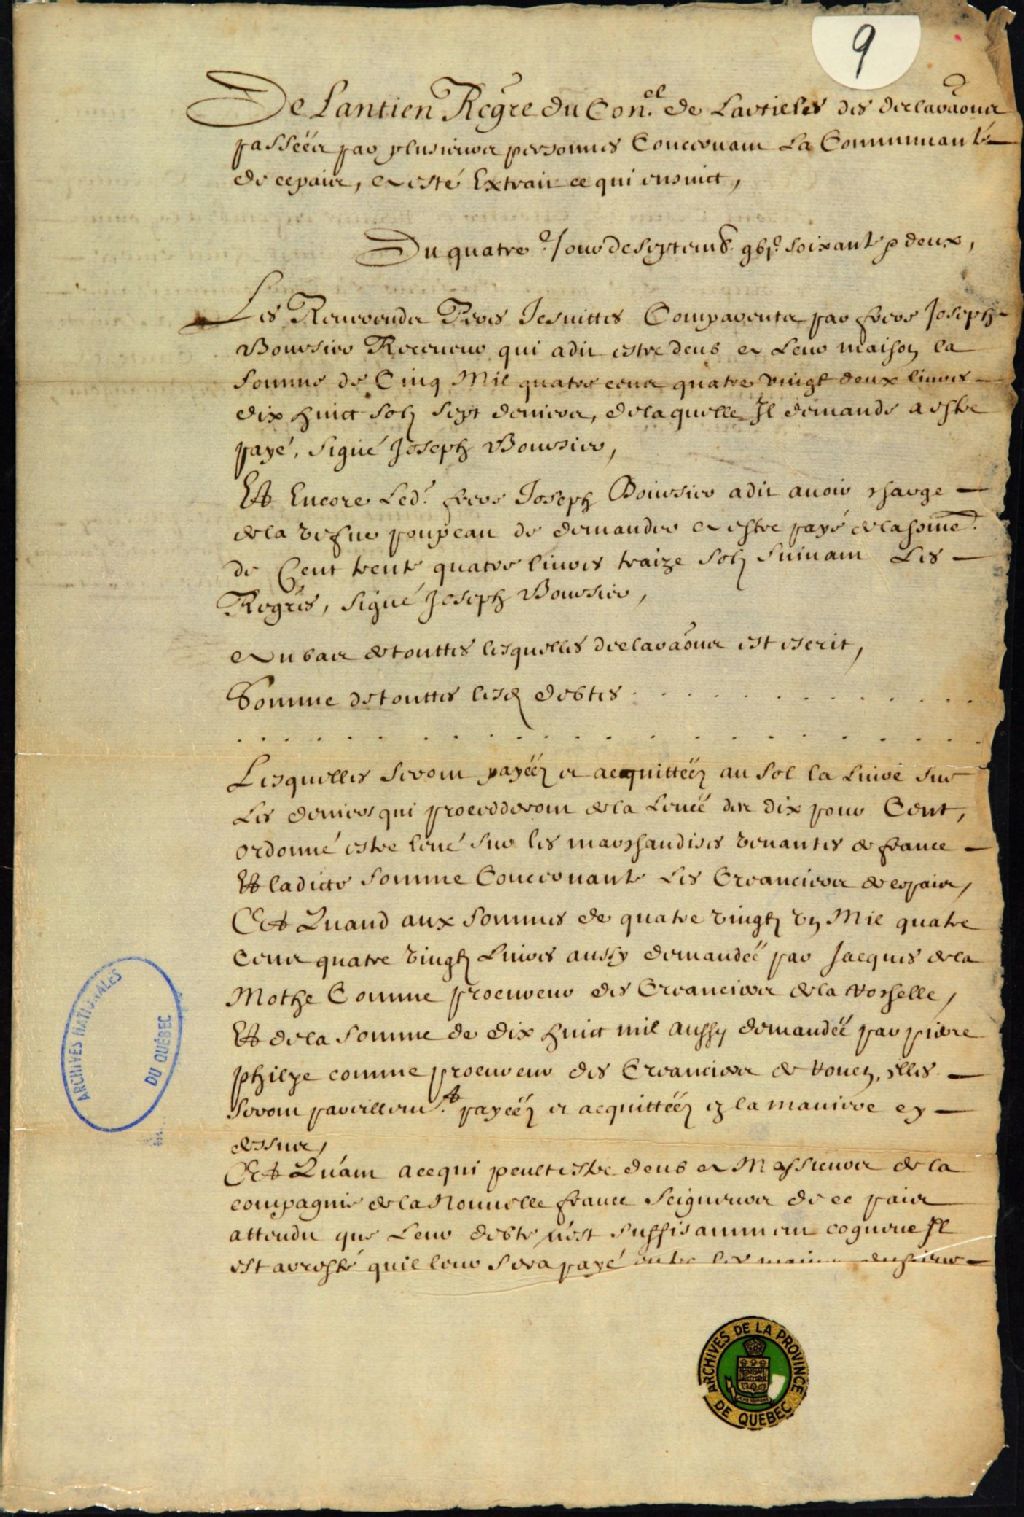 9
De Lantien Regre du Con.el de Larticles des declaraõns
passéës par plusieurs personnes Concernant La Communauté
de ce pais, a esté Extrait ce qui ensuict,
Du quatre.e Jour de Septemb. gbjc soixante deux,
Les Reuerends Peres Jesuittes Comparents par frere Joseph
Boursier Receueur qui a dit estre deub a Leur maison la
somme de Cinq Mil quatre cens quatre vingt deux liures
dix huict solz sept deniers, de laquelle Il demande a estre
payé, signé Joseph Boursier,
Et Encore Led.t frere Joseph Boursier a dit auoir charge
de la vefue poupeau de demander a estre payé de la some
de Cent trente quatre liures traize solz suiuant Les
Regres, signé Joseph Boursier,
au bas de touttes lesquelles declaraõns est escrit,
Somme de touttes lesd debtes
Lesquelles seront payéez et acquittéez au sol la Liure sur
Les deniers qui procedderont de la Leuéé des dix pour Cent,
ordonné estre leué sur les marchandises venantes de france
Et ladicte somme Concernante Les Creanciers de ce pais,
Et Quand aux sommes de quatre vingtz un Mil quatre
Cens quatre vingtz Liures aussy demandéé par Jacques de la
Mothe Comme procureur des Creanciers de la Rochelle,
Et de la somme de dix huict mil aussy demandéé par pierre
philpe comme procureur des Creanciers de Rouen, elles
seront pareillem.t payéez et acquittéez en la maniere cy
dessus,
Et Quant a ce qui peult estre deub a Messieurs de la
compagnie de la Nouuelle france Seigneurs de ce pais
attendu que Leur debte n'est suffisamment cogneue Il
est arresté quil leur sera payé entre les mains
ARCHIVES NATIONALES DU QUÉBEC
ARCHIVES DE LA PROVINCE DE QUEBEC